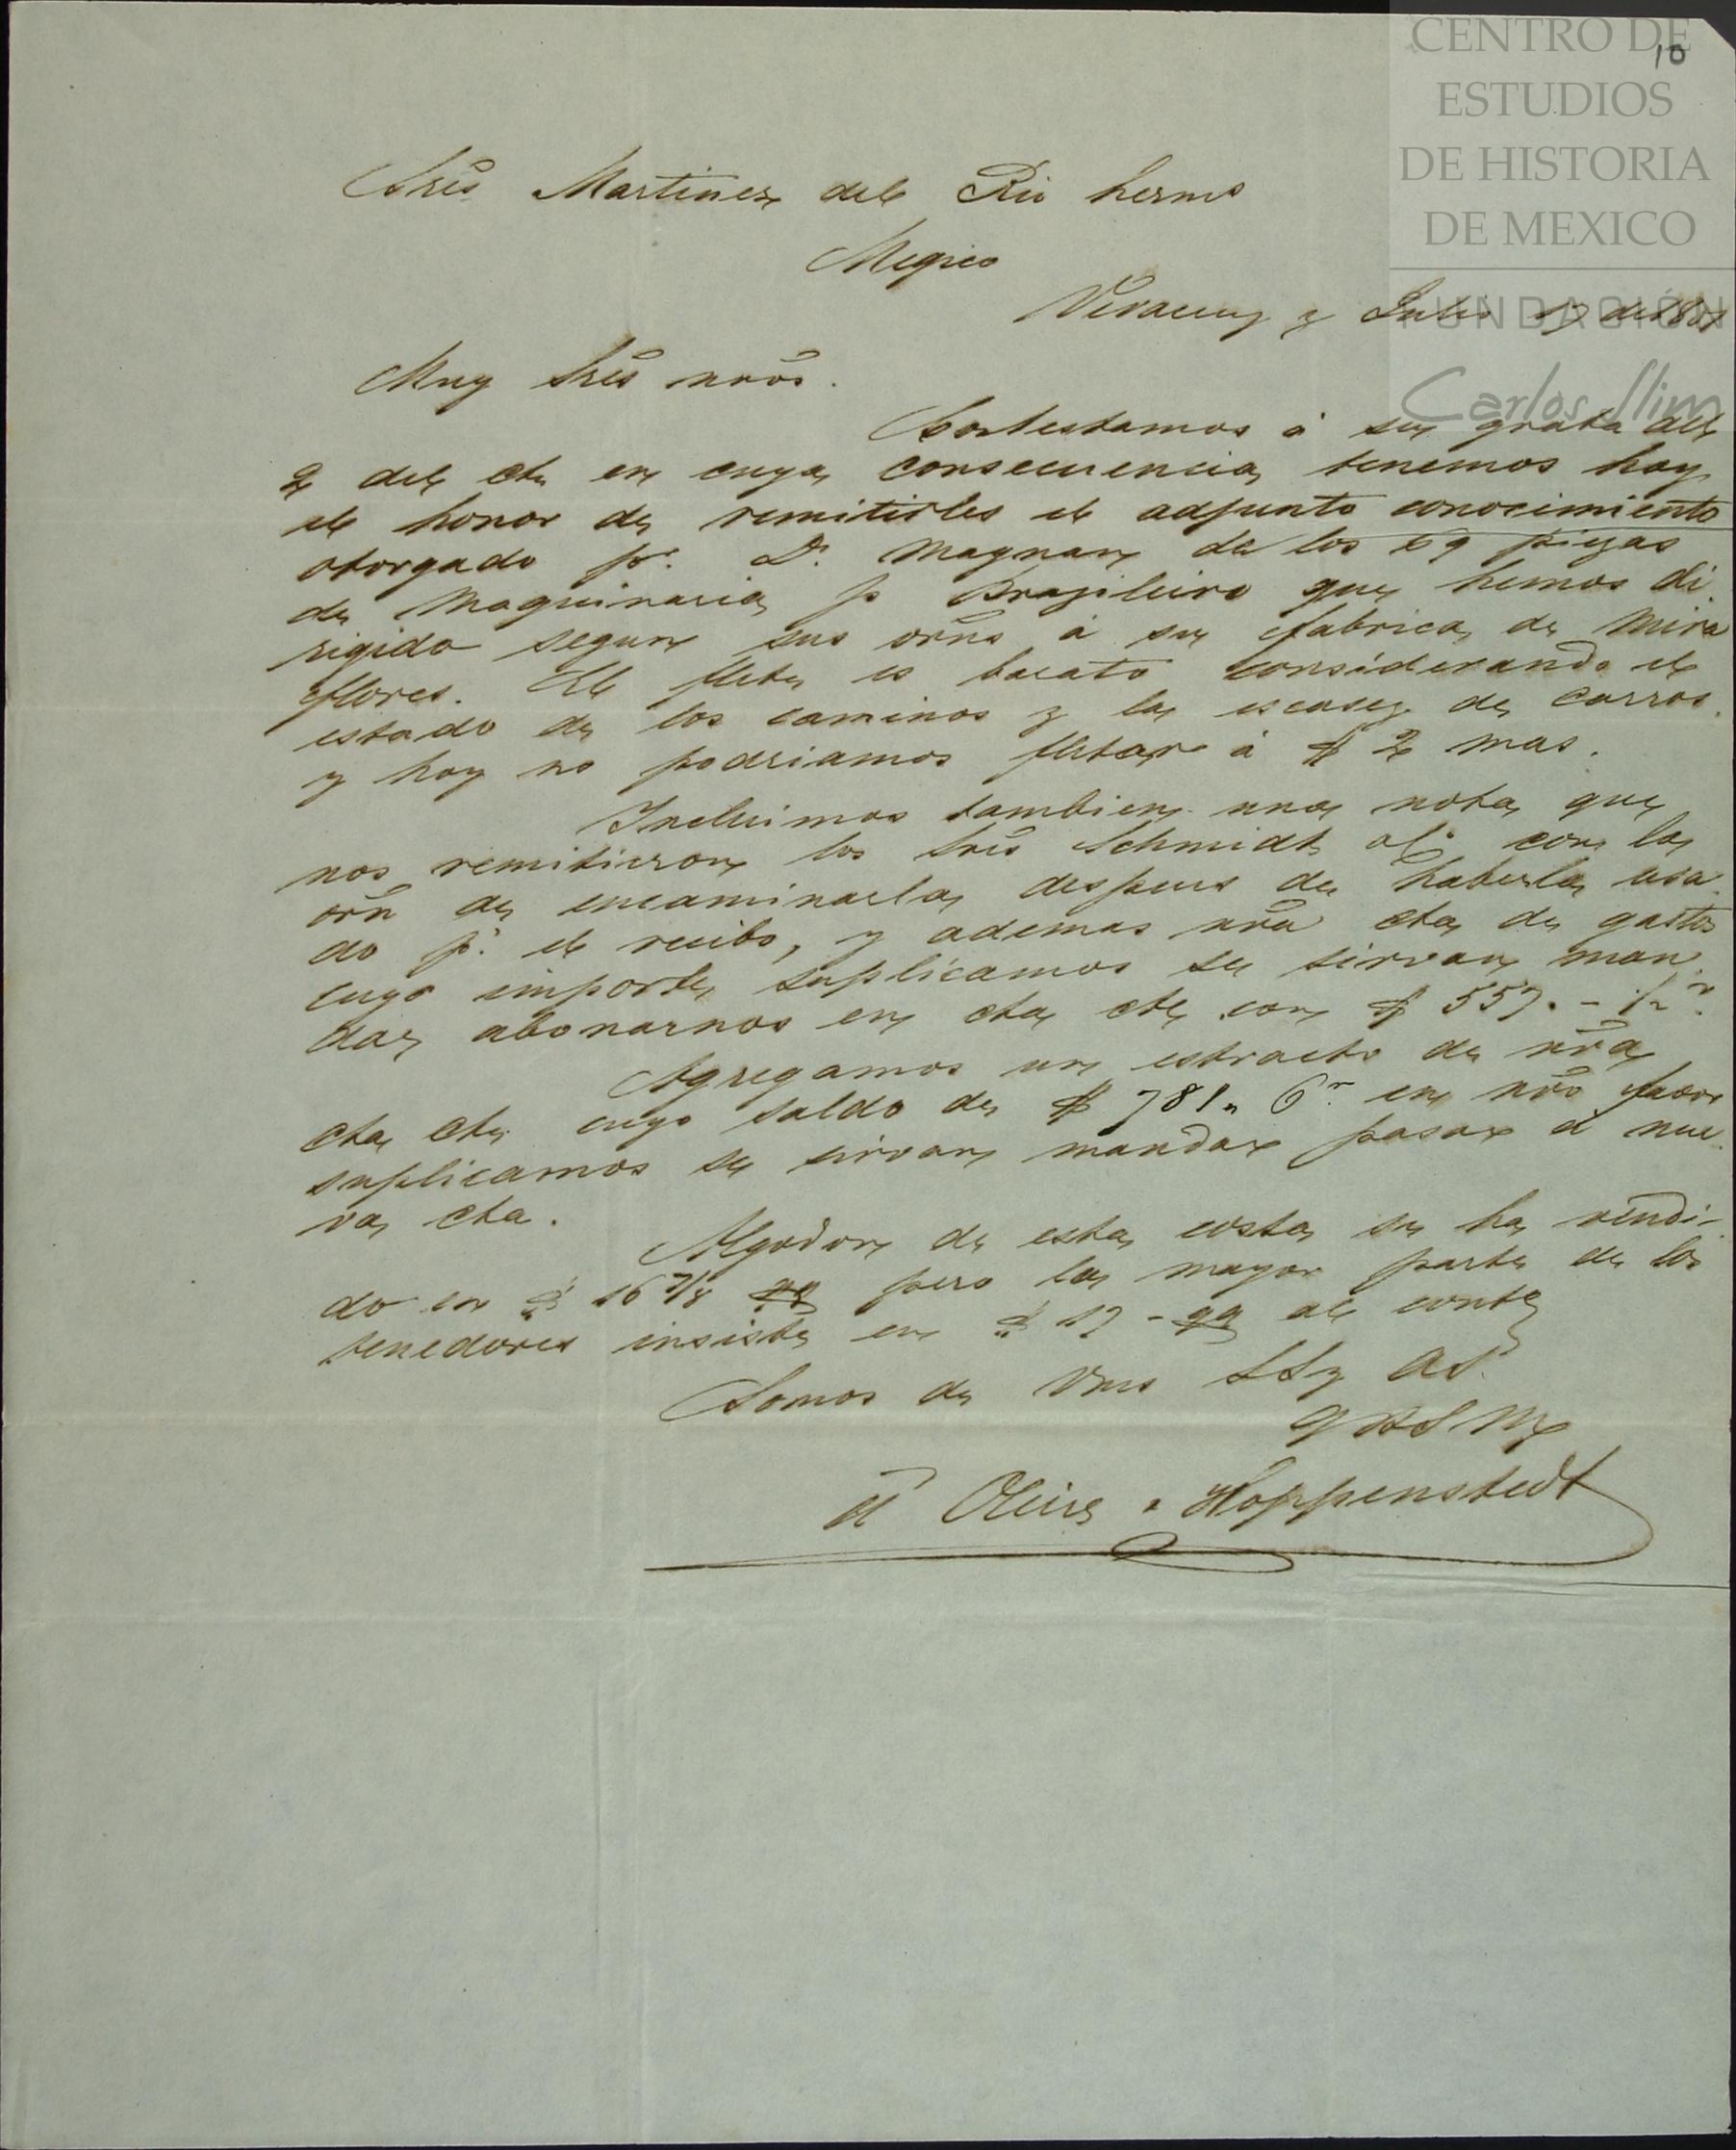 CENTRO DE
ESTUDIOS
DE HISTORIA
DE MEXICO
FUNDACIÓN
Carlos Slim
10
Sres Martinez del Rio hermo
Megico
Veracruz y Julio 17 de
Muy Sres nros.
Contestamos á su grata del
2 del cte en cuya consecuencia tenemos hoy
el honor de remitirles el adjunto conocimiento
otorgado pr. D. Magnan de los 69 piezas
de Maquinaria p Brazileiro que hemos di
rigido segun sus orns á su fabrica de Mira
flores. El flete es barato considerando el
estado de los caminos y la escasez de carros
y hoy no podriamos fletar á $ 2 mas.
Incluimos tambien una nota que
nos remitieron los Sres Schmidt con la
orn de encaminarla despues de haberla usa
do pr. el recibo, y ademas nra cta de gastos
cuyo importe suplicamos se sirvan man
dar abonarnos en cta cte con $ 557. -
Agregamos un estracto de nra
cta cte cuyo saldo de $ 781,, 6 r. en nro favor
suplicamos se sirvan mandar pasar á nue
va cta.
Algodon de esta costa se ha vendi-
do en $ 16 7/8 qq pero la mayor parte de los
tenedores insiste en $ 17 - qq al contdo
Somos de Vms SSy
QBSM
d' Oleire & Hoppenstedt